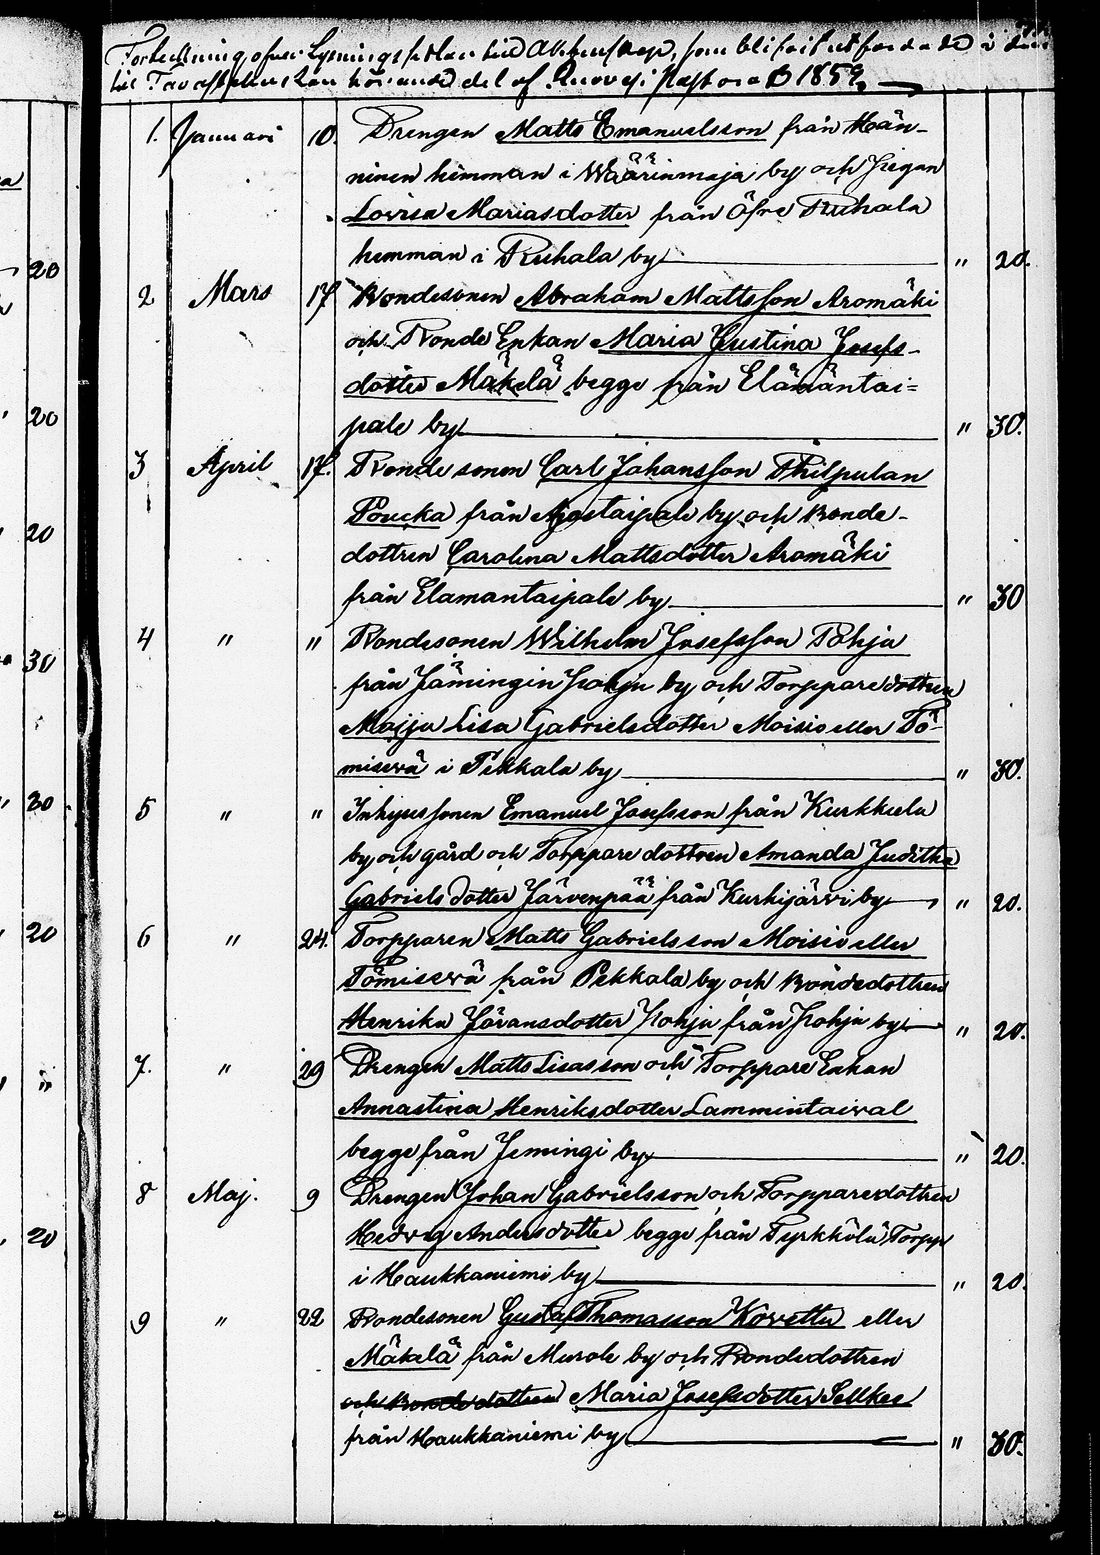 Förteckning öfver Lysnings sedlar till Äktenskap, som blifvit utfärdade i den
till Tavastehus Län hörande del af Ruovesi Pastorat 1859.
1. Januari 10. Drengen Matts Emanuelsson från Hän-
ninen hemman i Wäärinmaja by och Pigan
Lovisa Mariasdotter från Öfre Ruhala
hemman i Ruhala by " 20.
2 Mars 17 Bondesonen Abraham Mattsson Aromäki
och Bonde Enkan Maria Justina Josefs-
dotter Mäkelä begge från Elämäntai=
pale by " 30.
3 April 17. Bonde sonen Carl Johansson Philpulan
Poucka från Ajostaipale by och Bonde-
dottren Carolina Mattsdotter Aromäki
från Elamantaipale by " 30
4 " " Bondesonen Wilhelm Josefsson Pohja
från Jämingin Pohja by och Torppare dottren
Majja Lisa Gabrielsdotter Moisio eller Tö-
misevä i Pekkala by " 30.
5 " " Inhysessonen Emanuel Josefsson från Kurkkula
by och gård och Torppare dottren Amanda Juditha
Gabriels dotter Järvenpää från Kurkijärvi by " 20.
6 " 24. Torpparen Matts Gabrielsson Moisio eller
Tömisevä från Pekkala by och Bondedottren
Henrika Göransdotter Pohja från Pohja by " 20.
7. " 29 Drengen Matts Lisasson och Torppare Enkan
Annastina Henriksdotter Lammintaival
begge från Jemingi by " 20.
8 Maj. 9 Drengen Johan Gabrielsson och Torpparedottren
Hedvig Andersdotter begge från Tyrkkölä Torpp
i Haukkaniemi by " 20.
9 " 22 Bondesonen Gustaf Thomasson Kovetta eller
Mäkelä från Murole by och Bondedottren
och Bondedottren Maria Josefsdotter Sellkee
från Haukkaniemi by " 30.
20
20
20
30
20
20
"
20